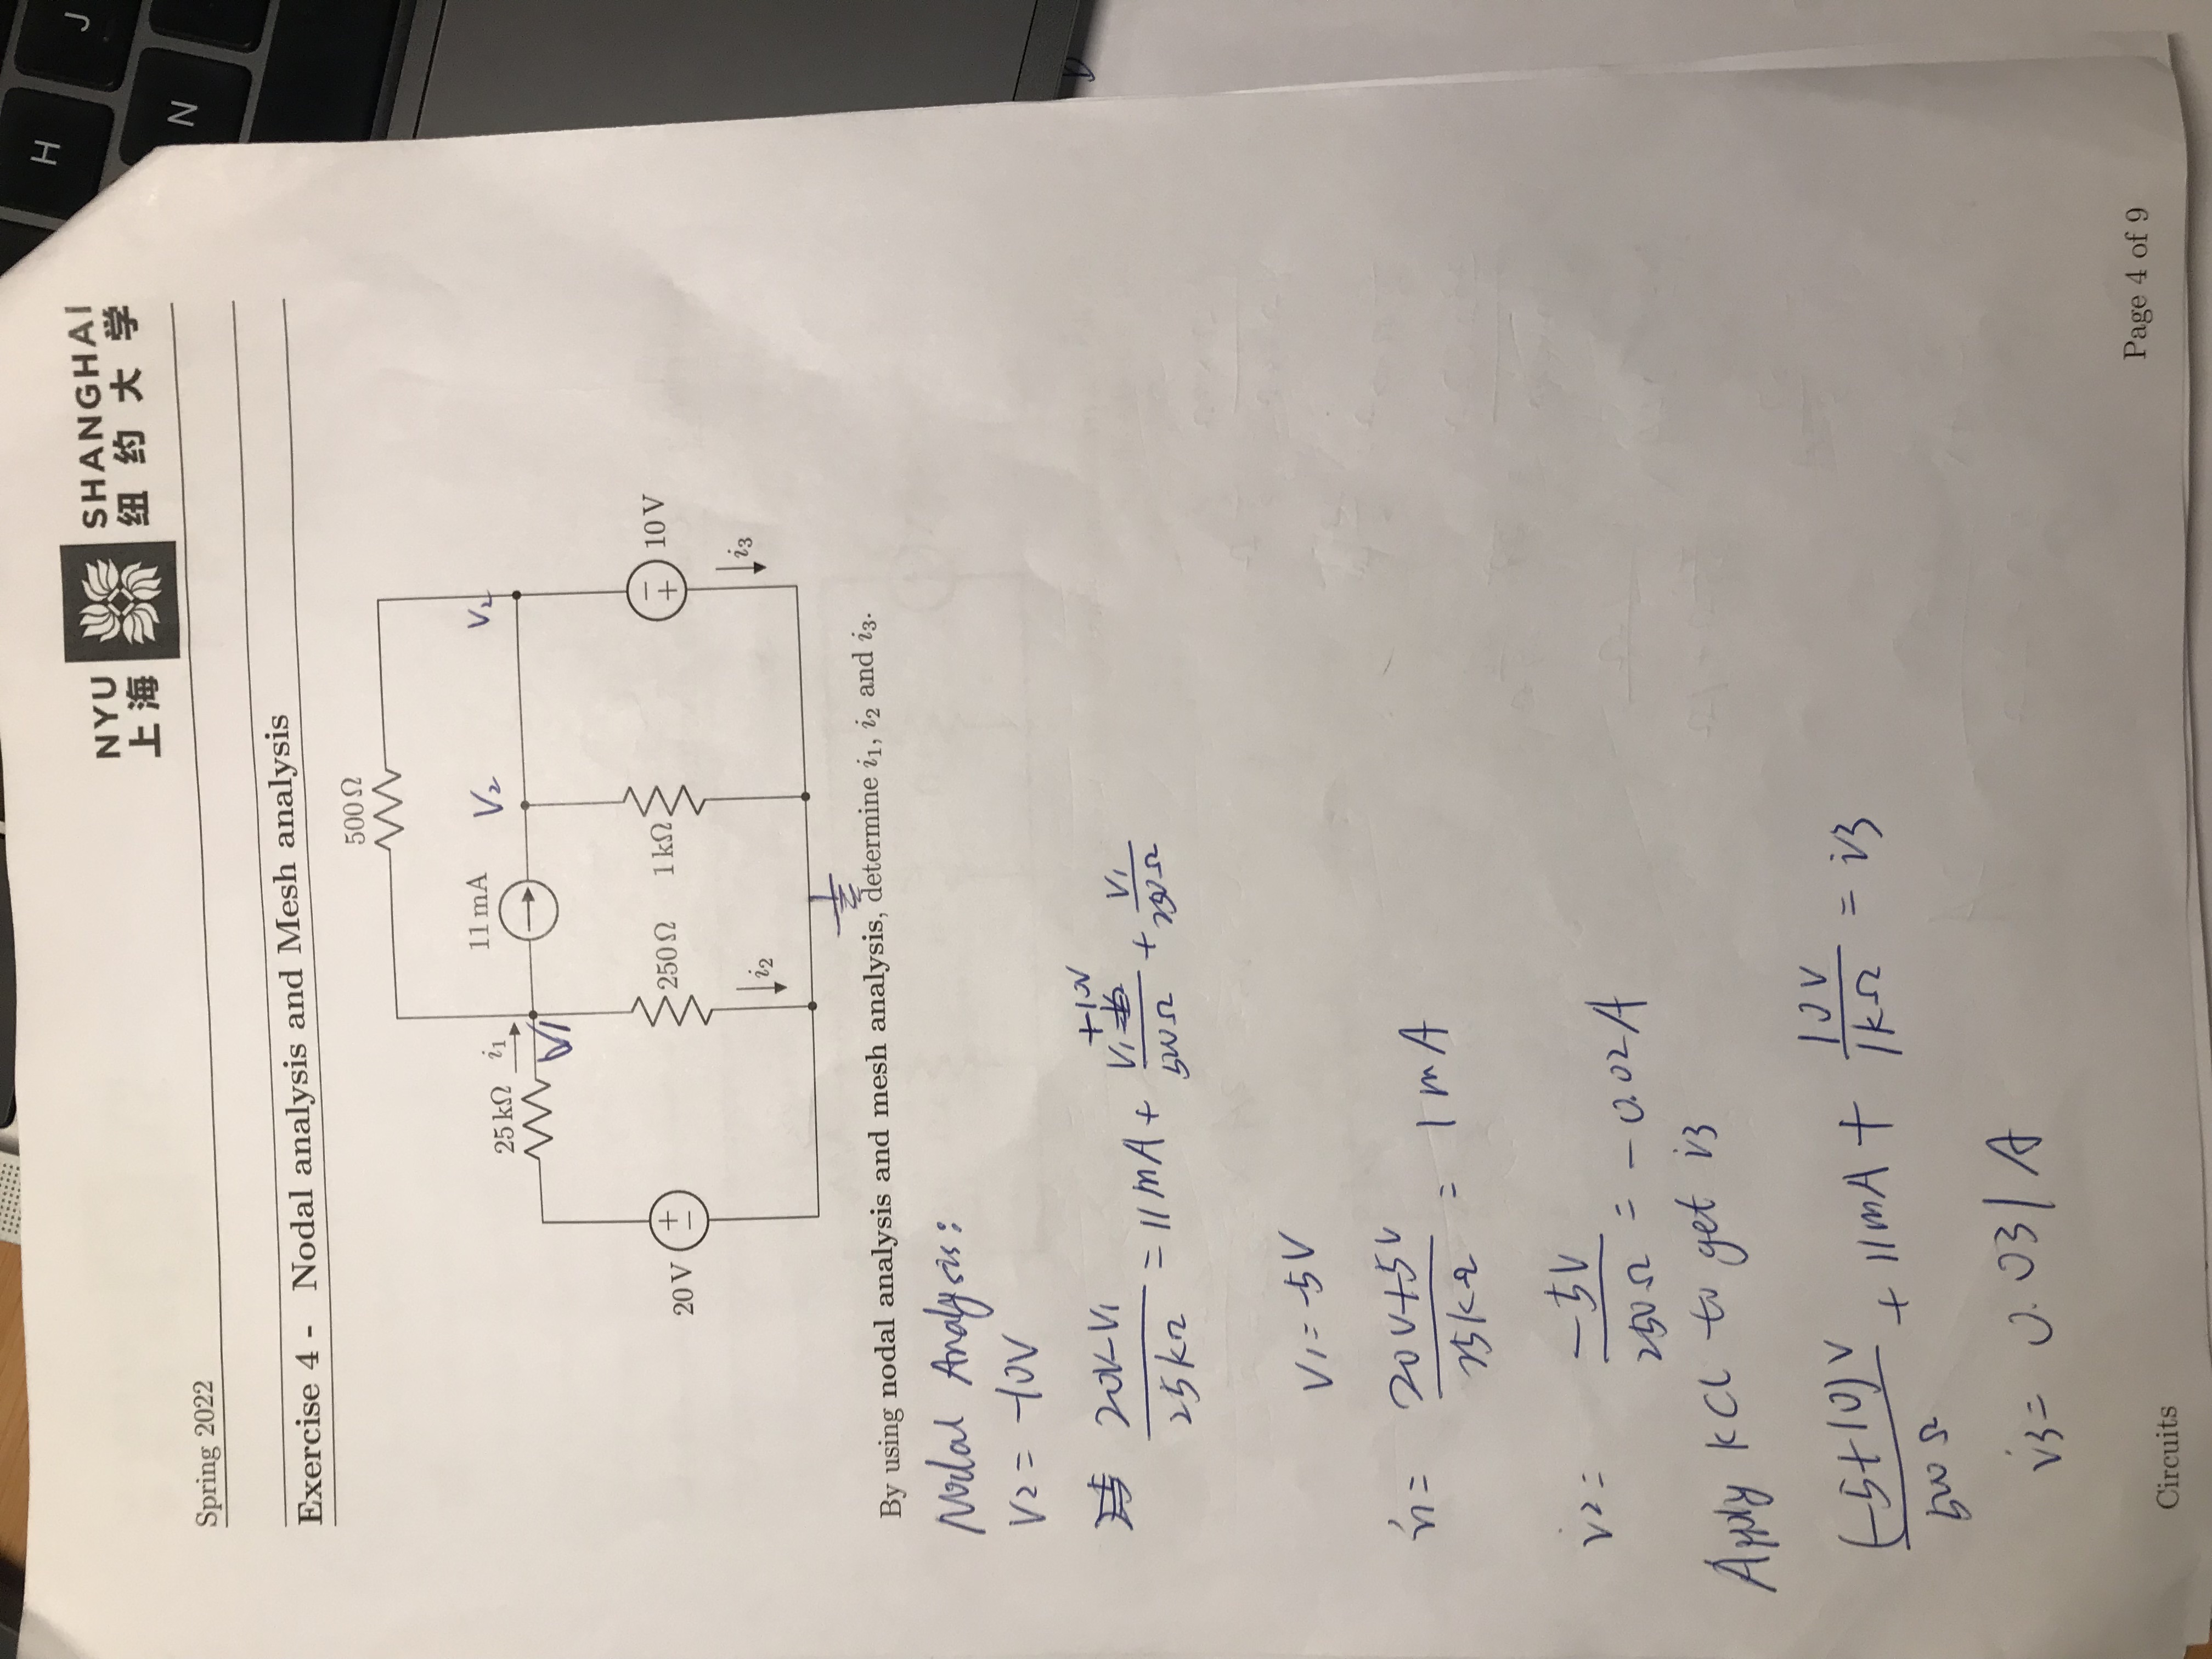 H
J
N
NYU SHANGHAI
上海 纽约大学
Spring 2022
Exercise 4 - Nodal analysis and Mesh analysis
500 Ω
11 mA V2 V2
25 kΩ i1
V1
20 V + − 250 Ω 1 kΩ − + 10 V
i2 i3
By using nodal analysis and mesh analysis, determine i1, i2 and i3.
Nodal Analysis:
V2 = -10V
+10V
20V-V1 / 25kΩ = 11mA + V1 / 500Ω + V1 / 250Ω
V1 = -5V
i1 = 20V+5V / 25kΩ = 1mA
i2 = -5V / 250Ω = -0.02A
Apply KCL to get i3
(-5+10)V / 500Ω + 11mA + 10V / 1kΩ = i3
i3 = 0.031A
Page 4 of 9
Circuits